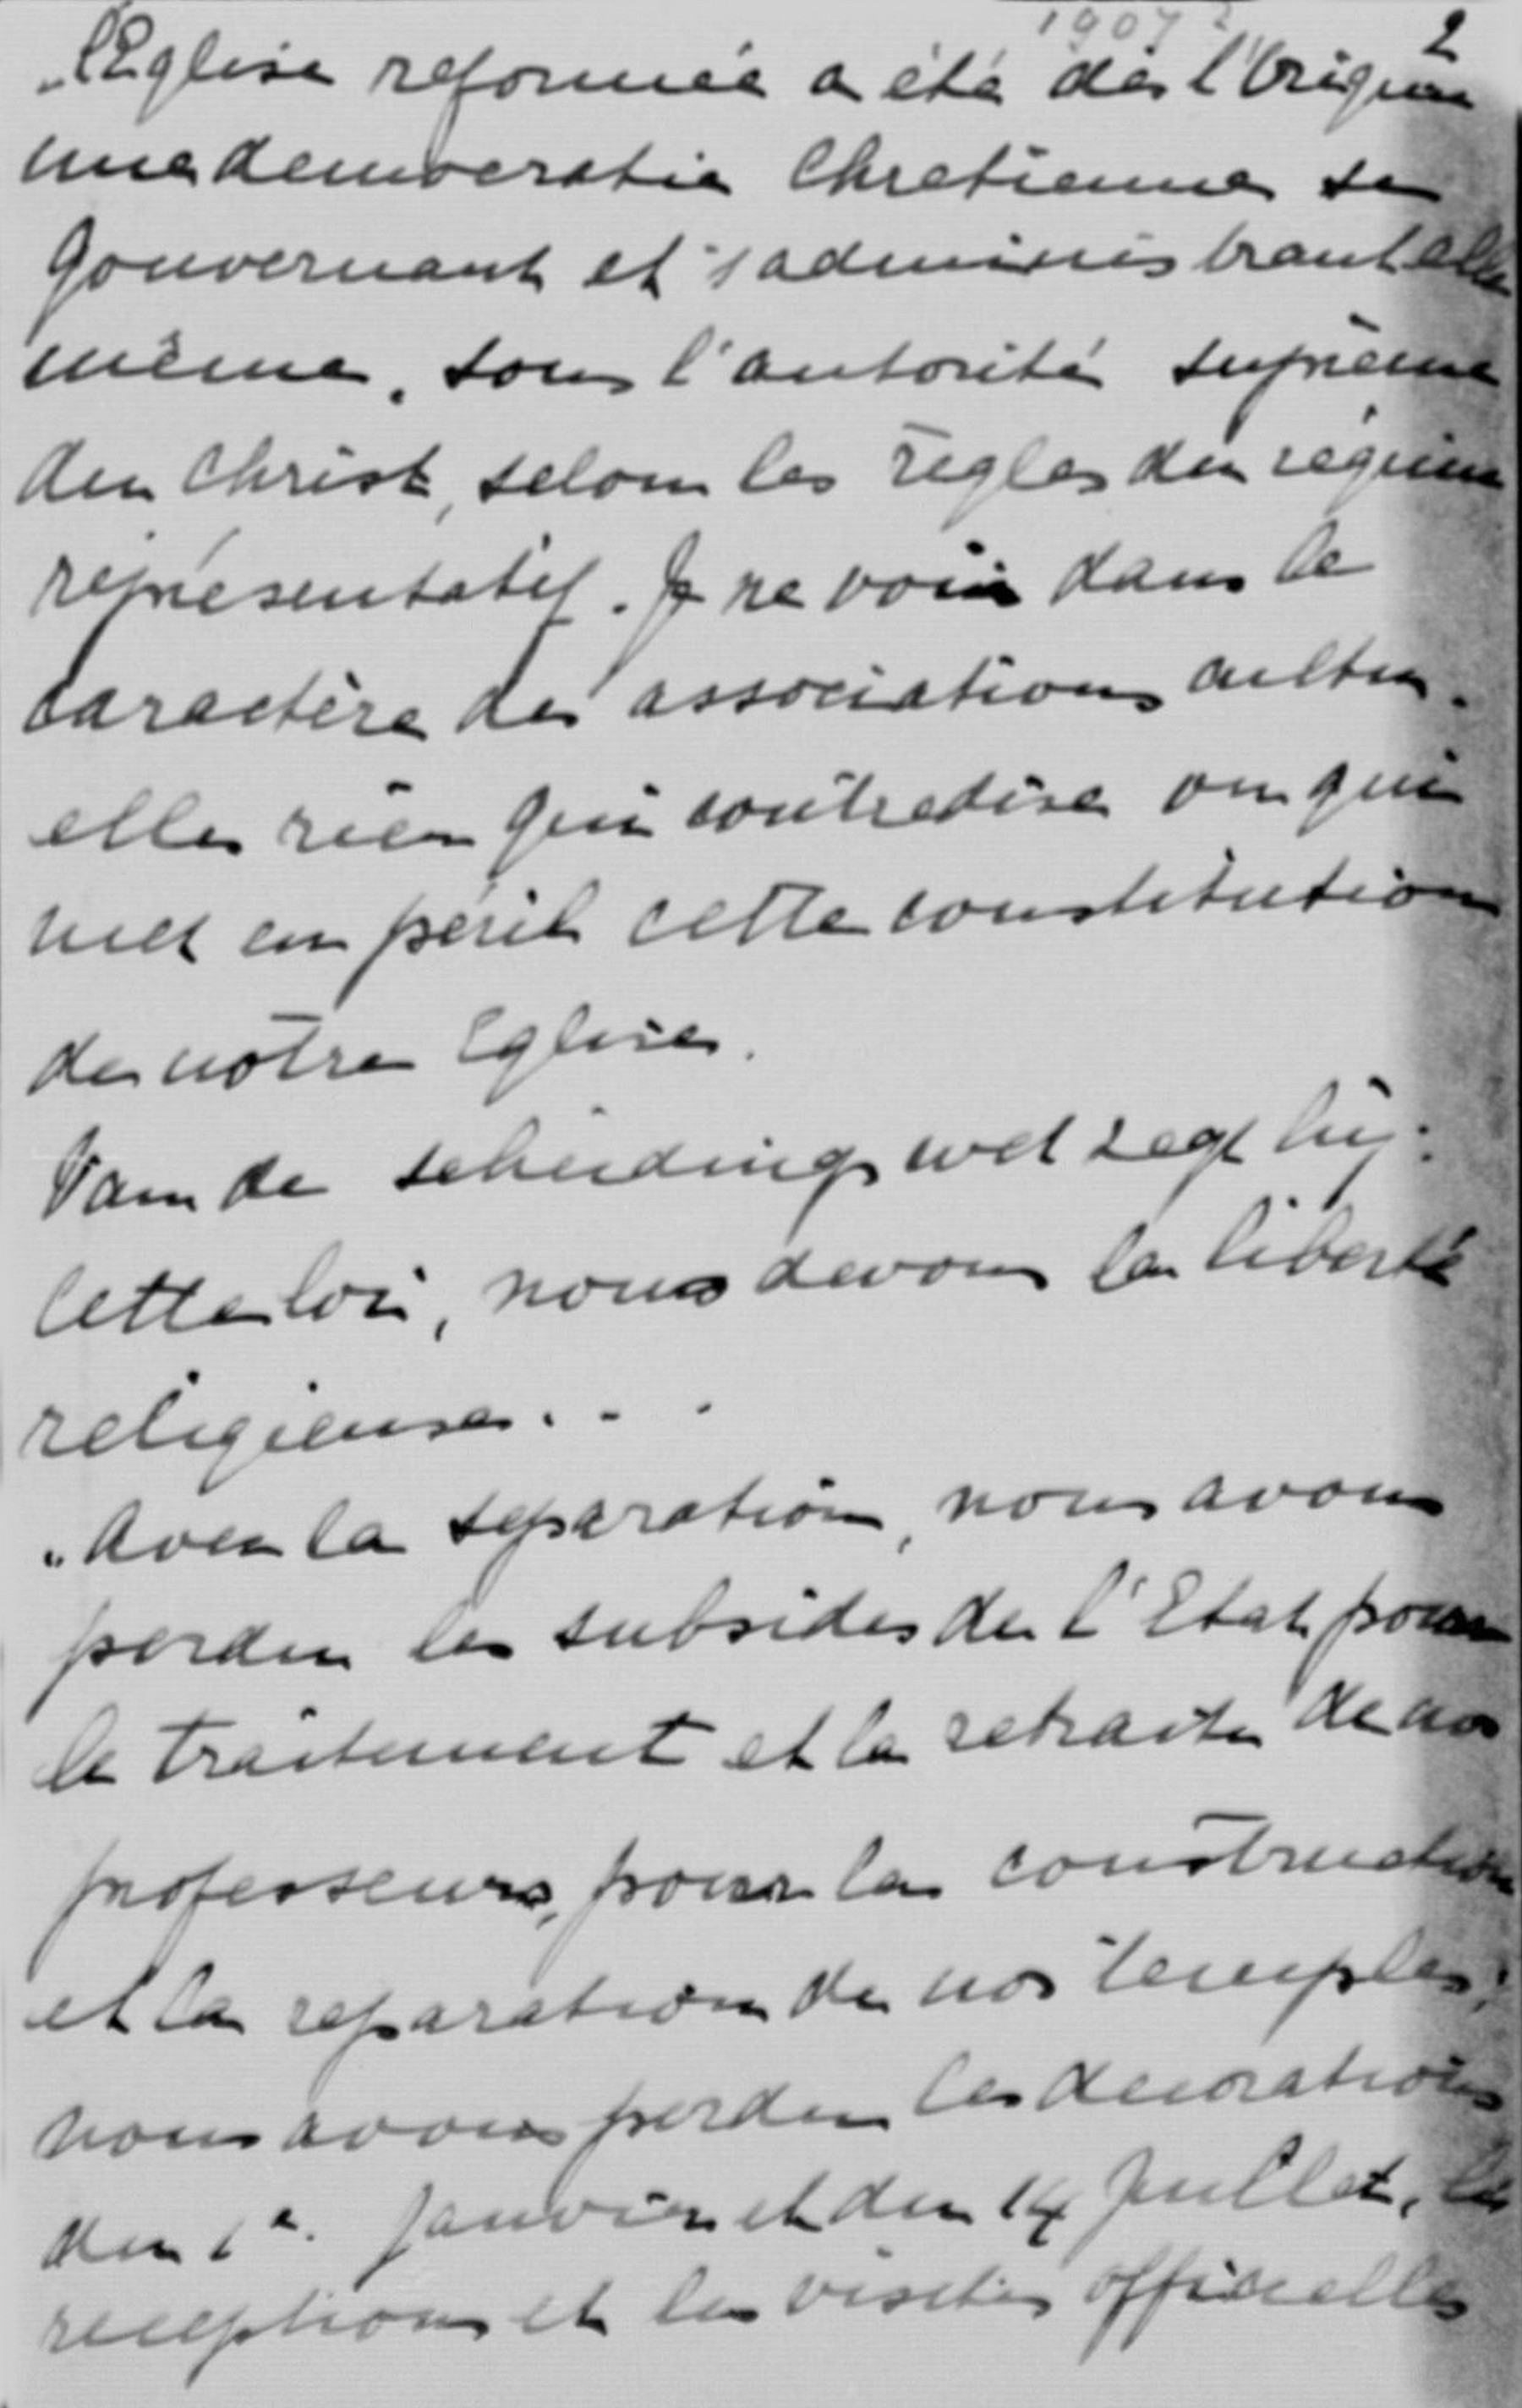 1907? 2
„l'Eglise reformée a été dès l'Origine
une democratie Chretienne se
Gouvernant et s'administrant elle
même, sous l'autorité suprême
du Christ, selon les règles du régime
représentatif. Je ne vois dans le
caractère des associations cultu-
elles rien qui contredise ou qui
met en péril cette constitution
de notre Eglise.
Van de scheidingswet zegt hij:
Cette loi, nous devons la liberté
religieuse. . .
„Avec la separation, nous avons
perdu les subsides de l'Etat pour
le traitement et la retraite de nos
professeurs, pour la construction
et la reparation de nos temples;
nous avons perdu les decorations
du 1e. Janvier et du 14 Juillet, les
receptions et les visites officielles